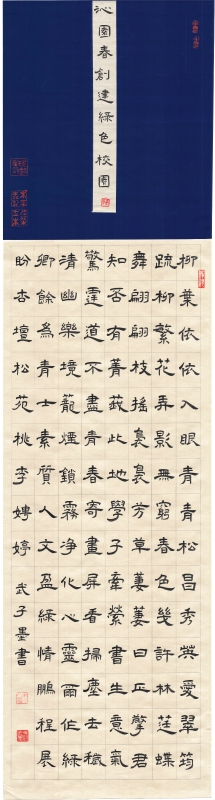 沁園春創建綠色校園
柳葉依依入眼青青松昌秀榮愛翠筠
疏柳繁花弄影無窮春色幾許林蓮蝶
舞翩翩枝搖裊裊芳草萋萋曰丘擎君
知否有菁莪此地學子牽縈書生意氣
驚霆道不盡青春寄畫屏看掃塵去穢
清幽樂境籠煙鎖霧淨化心靈爾作綠
卿餘為青士素質人文盈綠情鵬程展
盼杏壇松苑桃李娉婷 武子墨書